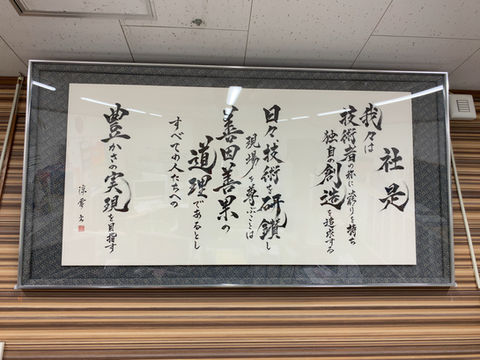 社是
我々は
技術者の為に誇りを持ち
独自の創造を追求する
日々技術を研鑽し
現場を尊ぶことは
善因善果の
道理であるとし
すべての人たちへの
豊かさの実現を目指す